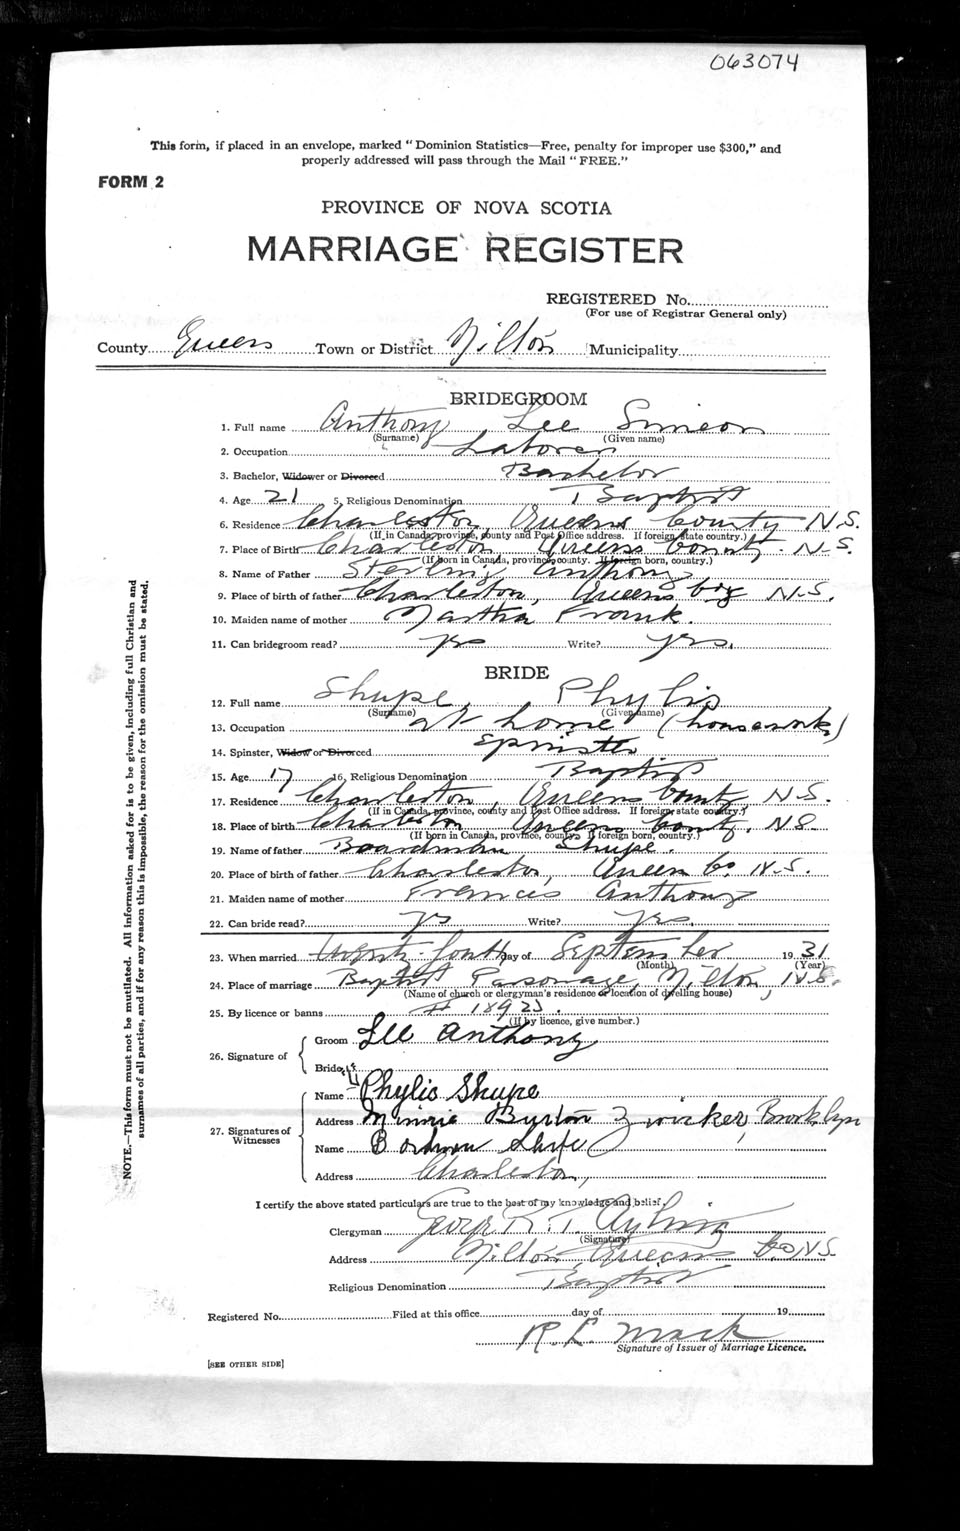 063074
This form, if placed in an envelope, marked "Dominion Statistics—Free, penalty for improper use $300," and
properly addressed will pass through the Mail "FREE."
FORM 2
PROVINCE OF NOVA SCOTIA
MARRIAGE REGISTER
REGISTERED No.
(For use of Registrar General only)
County Queens Town or District Milton Municipality
BRIDEGROOM
1. Full name Anthony Lee Simeon
(Surname) (Given name)
2. Occupation Laborer
3. Bachelor, Widower or Divorced Bachelor
4. Age 21 5. Religious Denomination Baptist
6. Residence Charleston, Queens County N.S.
(If in Canada, province, county and Post Office address. If foreign, state country.)
7. Place of Birth Charleston, Queens County. N-S.
(If born in Canada, province, county. If foreign born, country.)
8. Name of Father Sterling Anthony
9. Place of birth of father Charleston, Queens N.S.
10. Maiden name of mother Martha Frank.
11. Can bridegroom read? yes Write? yes.
BRIDE
12. Full name Shupe Phylis
(Surname) (Given name)
13. Occupation at home (housework)
14. Spinster, Widow or Divorced Spinster
15. Age 17 16. Religious Denomination Baptist
17. Residence Charleston, Queens County N.S.
(If in Canada, province, county and Post Office address. If foreign, state country.)
18. Place of birth Charleston Queens County. NS.
(If born in Canada, province, county. If foreign born, country.)
19. Name of father Boardman Shupe.
20. Place of birth of father Charleston, Queen Co. N.S.
21. Maiden name of mother Francis Anthony
22. Can bride read? yes Write? yes.
23. When married day of September 1931
(Month) (Year)
24. Place of marriage Baptist Parsonage, Milton, N.S.
(Name of church or clergyman's residence or location of dwelling house)
25. By licence or banns # 18923.
(If by licence, give number.)
26. Signature of
Groom Lee Anthony
Bride
27. Signatures of Witnesses
Name Phylis Shupe
Address Minnie Burton Zwicker, Brooklyn
Name Bordman Shupe
Address Charleston,
I certify the above stated particulars are true to the best of my knowledge and belief,
Clergyman
(Signature)
Address Milton, Queens Co N.S.
Religious Denomination Baptist
Registered No. Filed at this office day of 19
R. L. Mack
Signature of Issuer of Marriage Licence.
[SEE OTHER SIDE]
NOTE.—This form must not be mutilated. All information asked for is to be given, including full Christian and
surnames of all parties, and if for any reason this is impossible, the reason for the omission must be stated.